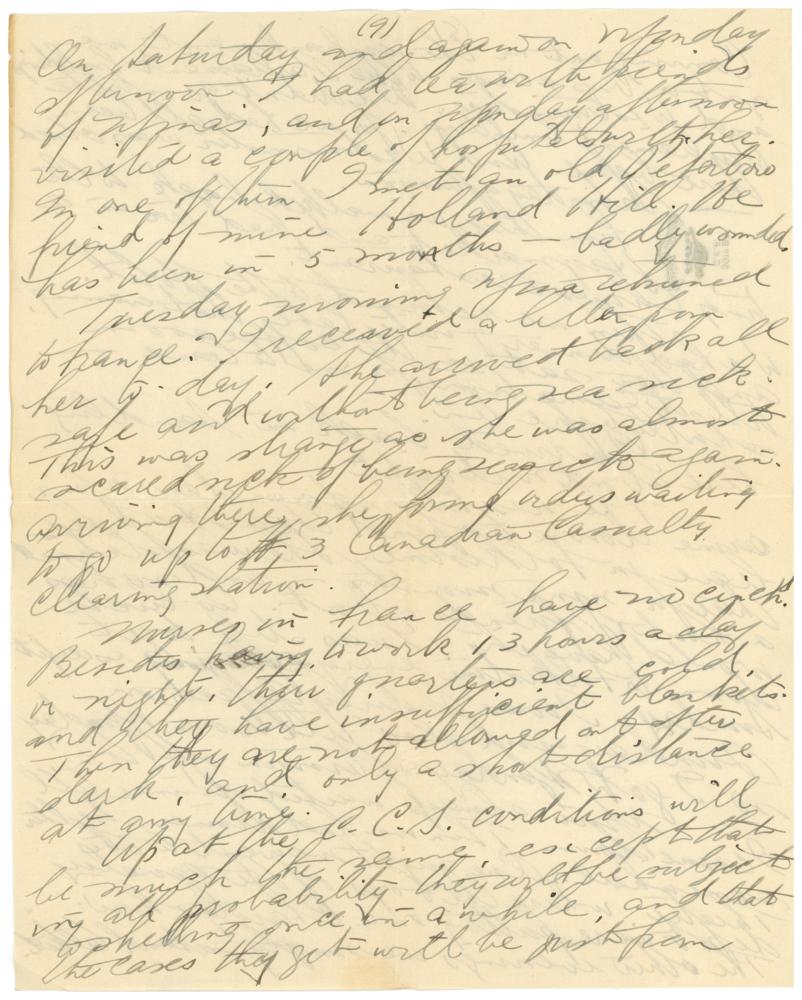 (9)
On Saturday and again on Monday
afternoon I had tea with friends
of Mina's, and on Monday afternoon
visited a couple of hospitals with her.
In one of them I met an old Peterboro
friend of mine Holland Hill. He
has been in 5 months — badly wounded.
Tuesday morning Mina returned
to France. I received a letter from
her to-day. She arrived back all
safe and without being sea sick.
This was strange as she was almost
scared sick of being seasick again.
arriving there she found orders waiting
to go up to # 3 Canadian Casualty
Clearing Station.
Nurses in France have no cinch.
Besides having to work 13 hours a day
or night, their quarters are cold,
and they have insufficient blankets.
Then they are not allowed out after
dark, and only a short distance
at any time.
Up at the C.C.S. conditions will
be much the same except that
in all probability they will be subject
to shelling once in a while, and that
the cases they get will be just from